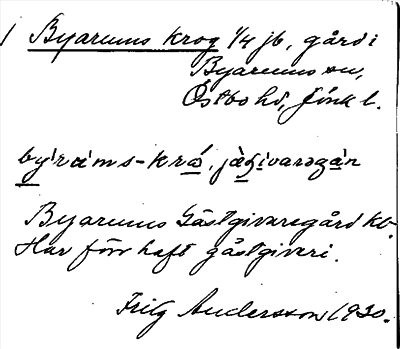 1 Byarums krog 1/4 jb, gård i
Byarums sn,
Östbo hd, Jönk l.
by'ra'ms-krå, jäʒivarəgån
Byarums Gästgivaregård kb.
Har förr haft gästgiveri.
Fritz Andersson 1930.